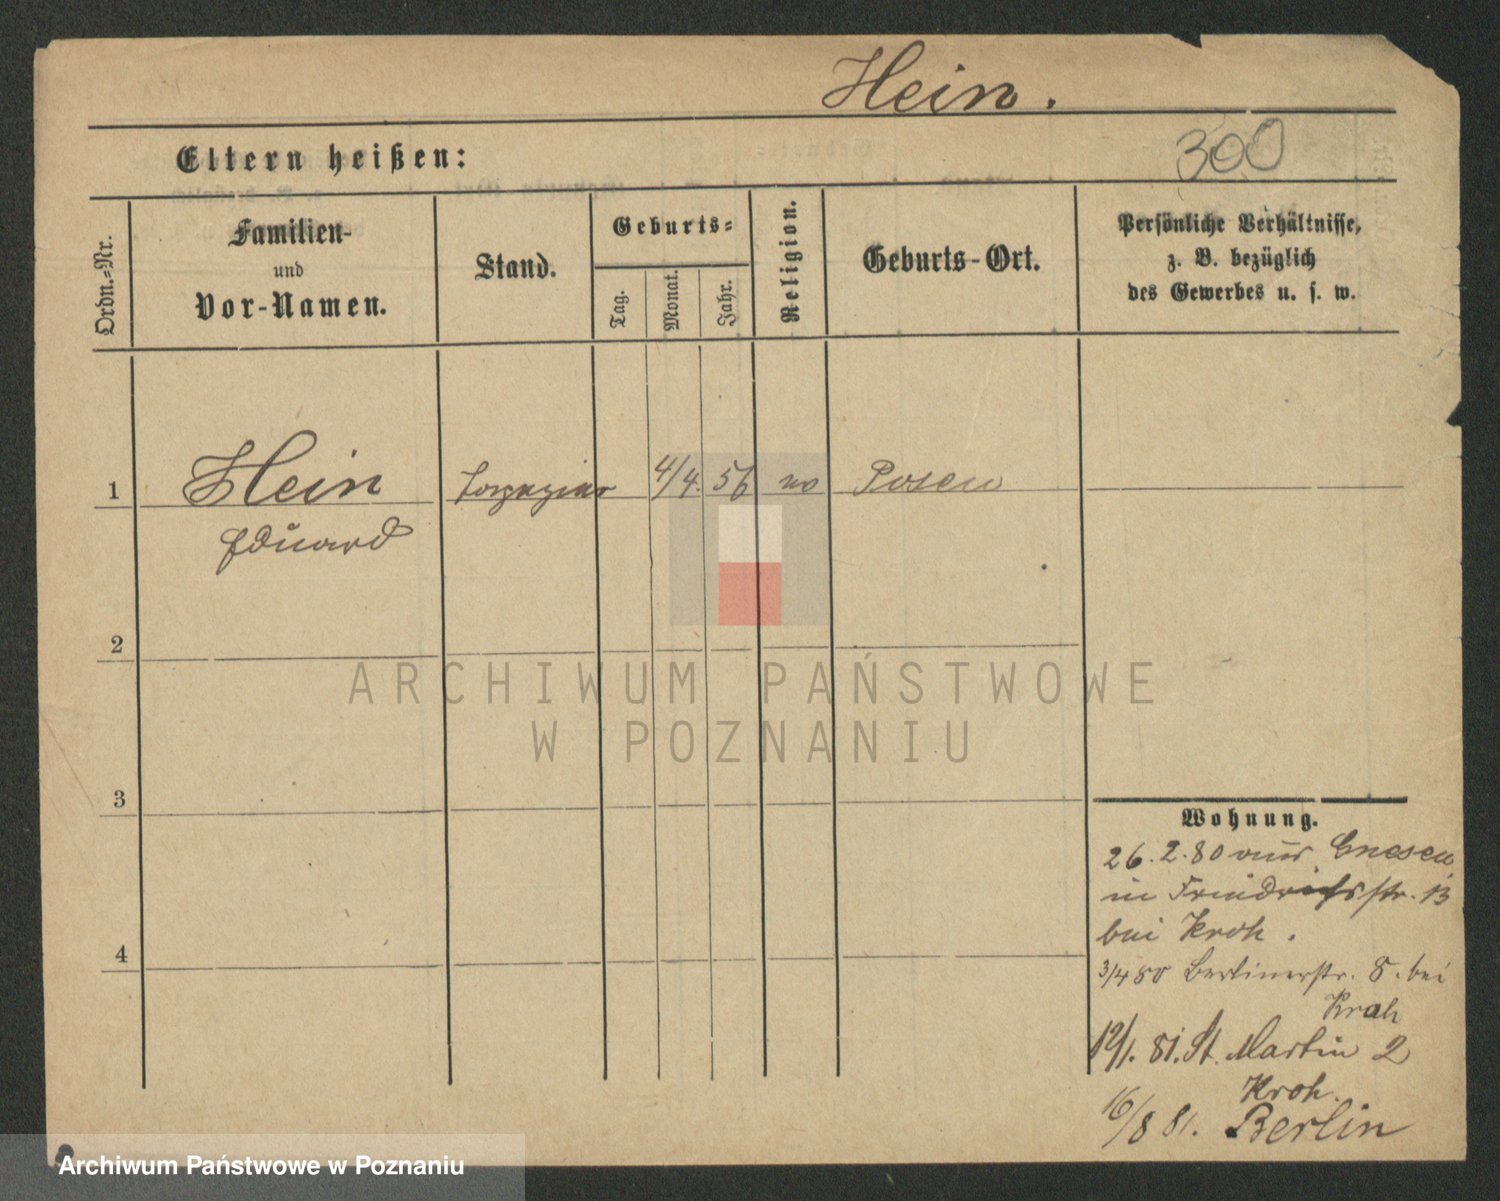 Hein.
300
Eltern heißen:
Ordn.=Nr.
Familien-
und
Vor-Namen.
Stand.
Geburts=
Tag.
Monat.
Jahr.
Religion.
Geburts-Ort.
Persönliche Verhältnisse,
z. B. bezüglich
des Gewerbes u. s. w.
1 Hein 4/4. 56 Posen
Eduard
2
3
4
ARCHIWUM PAŃSTWOWE
W POZNANIU
Wohnung.
26.2.80 aus Gnesen
in Friedrichsstr. 13
bei Kroh.
3/4 80 Berlinerstr. 8. bei
Krah
12/1. 81. St. Martin 2
Kroh.
16/8 81. Berlin
Archiwum Państwowe w Poznaniu